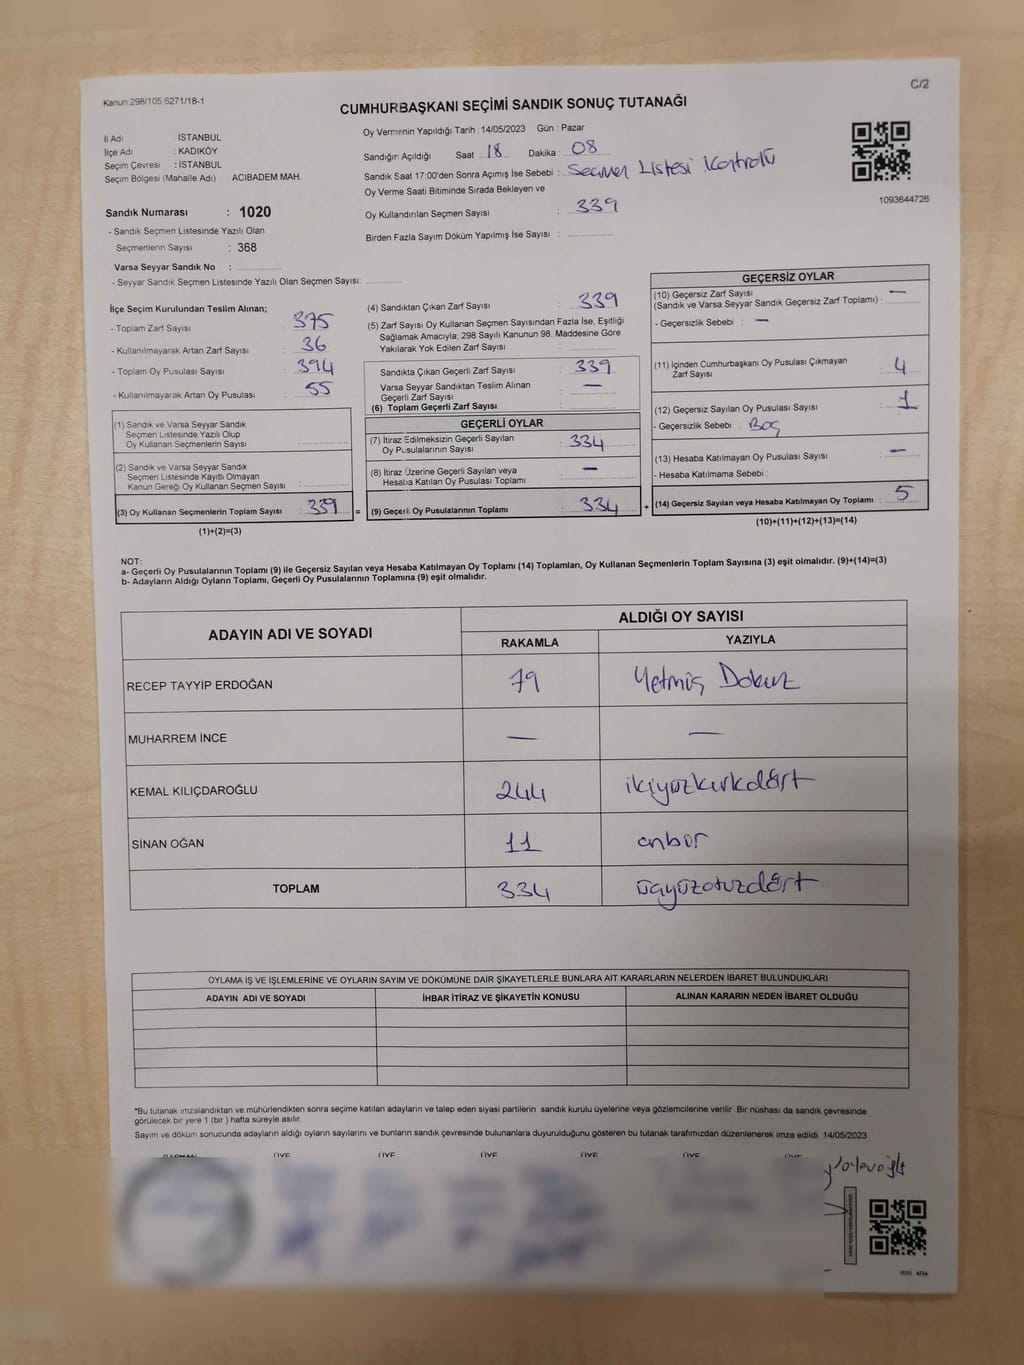 Kanun:298/105;6271/18-1
C/2
CUMHURBAŞKANI SEÇİMİ SANDIK SONUÇ TUTANAĞI
İl Adı : İSTANBUL
İlçe Adı : KADIKÖY
Seçim Çevresi : İSTANBUL
Seçim Bölgesi (Mahalle Adı) : ACIBADEM MAH.
Sandık Numarası : 1020
- Sandık Seçmen Listesinde Yazılı Olan
Seçmenlerin Sayısı : 368
Varsa Seyyar Sandık No :
- Seyyar Sandık Seçmen Listesinde Yazılı Olan Seçmen Sayısı:
Oy Vermenin Yapıldığı Tarih : 14/05/2023 Gün : Pazar
Sandığın Açıldığı Saat : 18 Dakika : 08
Sandık Saat 17:00'den Sonra Açımış İse Sebebi : Seçmen Listesi Kontrolü
Oy Verme Saati Bitiminde Sırada Bekleyen ve
Oy Kullandırılan Seçmen Sayısı : 339
Birden Fazla Sayım Döküm Yapılmış İse Sayısı :
1093644726
İlçe Seçim Kurulundan Teslim Alınan;
- Toplam Zarf Sayısı : 375
- Kullanılmayarak Artan Zarf Sayısı : 36
- Toplam Oy Pusulası Sayısı : 394
- Kullanılmayarak Artan Oy Pusulası : 55
(1) Sandık ve Varsa Seyyar Sandık
Seçmen Listesinde Yazılı Olup
Oy Kullanan Seçmenlerin Sayısı :
(2) Sandık ve Varsa Seyyar Sandık
Seçmen Listesinde Kayıtlı Olmayan
Kanun Gereği Oy Kullanan Seçmen Sayısı :
(3) Oy Kullanan Seçmenlerin Toplam Sayısı : 339 =
(1)+(2)=(3)
(4) Sandıktan Çıkan Zarf Sayısı : 339
(5) Zarf Sayısı Oy Kullanan Seçmen Sayısından Fazla İse, Eşitliği
Sağlamak Amacıyla; 298 Sayılı Kanunun 98. Maddesine Göre
Yakılarak Yok Edilen Zarf Sayısı :
Sandıkta Çıkan Geçerli Zarf Sayısı : 339
Varsa Seyyar Sandıktan Teslim Alınan
Geçerli Zarf Sayısı : —
(6) Toplam Geçerli Zarf Sayısı :
GEÇERLİ OYLAR
(7) İtiraz Edilmeksizin Geçerli Sayılan
Oy Pusulalarının Sayısı : 334
(8) İtiraz Üzerine Geçerli Sayılan veya
Hesaba Katılan Oy Pusulası Toplamı : —
(9) Geçerli Oy Pusulalarının Toplamı : 334 +
GEÇERSİZ OYLAR
(10) Geçersiz Zarf Sayısı
(Sandık ve Varsa Seyyar Sandık Geçersiz Zarf Toplamı) : —
- Geçersizlik Sebebi : —
(11) İçinden Cumhurbaşkanı Oy Pusulası Çıkmayan
Zarf Sayısı : 4
(12) Geçersiz Sayılan Oy Pusulası Sayısı : 1
- Geçersizlik Sebebi : Boş
(13) Hesaba Katılmayan Oy Pusulası Sayısı : —
- Hesaba Katılmama Sebebi :
(14) Geçersiz Sayılan veya Hesaba Katılmayan Oy Toplamı : 5
(10)+(11)+(12)+(13)=(14)
NOT:
a- Geçerli Oy Pusulalarının Toplamı (9) ile Geçersiz Sayılan veya Hesaba Katılmayan Oy Toplamı (14) Toplamları, Oy Kullanan Seçmenlerin Toplam Sayısına (3) eşit olmalıdır. (9)+(14)=(3)
b- Adayların Aldığı Oyların Toplamı, Geçerli Oy Pusulalarının Toplamına (9) eşit olmalıdır.
ADAYIN ADI VE SOYADI
ALDIĞI OY SAYISI
RAKAMLA YAZIYLA
RECEP TAYYİP ERDOĞAN 79 Yetmiş Dokuz
MUHARREM İNCE — —
KEMAL KILIÇDAROĞLU 244 ikiyüzkırkdört
SİNAN OĞAN 11 onbir
TOPLAM 334 üçyüzotuzdört
OYLAMA İŞ VE İŞLEMLERİNE VE OYLARIN SAYIM VE DÖKÜMÜNE DAİR ŞİKAYETLERLE BUNLARA AİT KARARLARIN NELERDEN İBARET BULUNDUKLARI
ADAYIN ADI VE SOYADI İHBAR İTİRAZ VE ŞİKAYETİN KONUSU ALINAN KARARIN NEDEN İBARET OLDUĞU
*Bu tutanak imzalandıktan ve mühürlendikten sonra seçime katılan adayların ve talep eden siyasi partilerin sandık kurulu üyelerine veya gözlemcilerine verilir. Bir nüshası da sandık çevresinde
görülecek bir yere 1 (bir) hafta süreyle asılır.
Sayım ve döküm sonucunda adayların aldığı oyların sayılarını ve bunların sandık çevresinde bulunanlara duyurulduğunu gösteren bu tutanak tarafımızdan düzenlenerek imza edildi. 14/05/2023
ÜYE ÜYE ÜYE ÜYE ÜYE